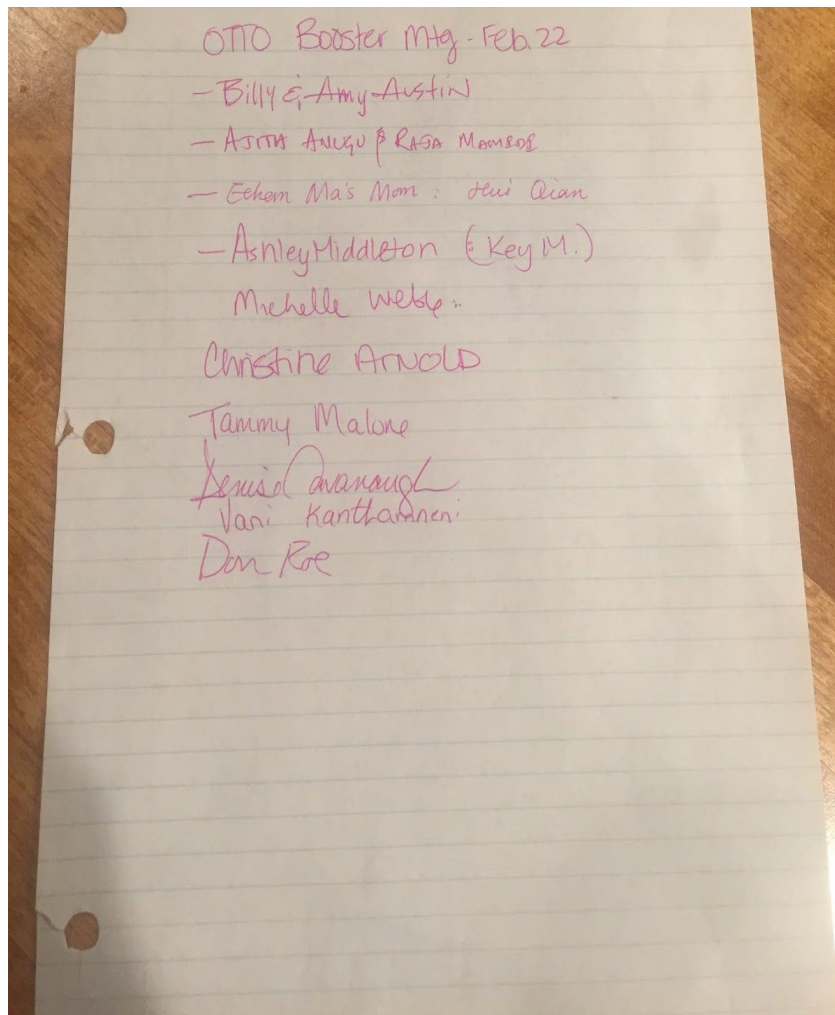 OTTO Booster Mtg - Feb. 22
- Billy & Amy Austin
- AJITA ANUGU & RAJA
- Ethem Ma's Mom : Hui Qian
- Ashley Middleton (& Key M.)
Michelle Webb
Christine ARNOLD
Tammy Malone
Denise Cavanaugh
Vani Kanthamneni
Don Roe